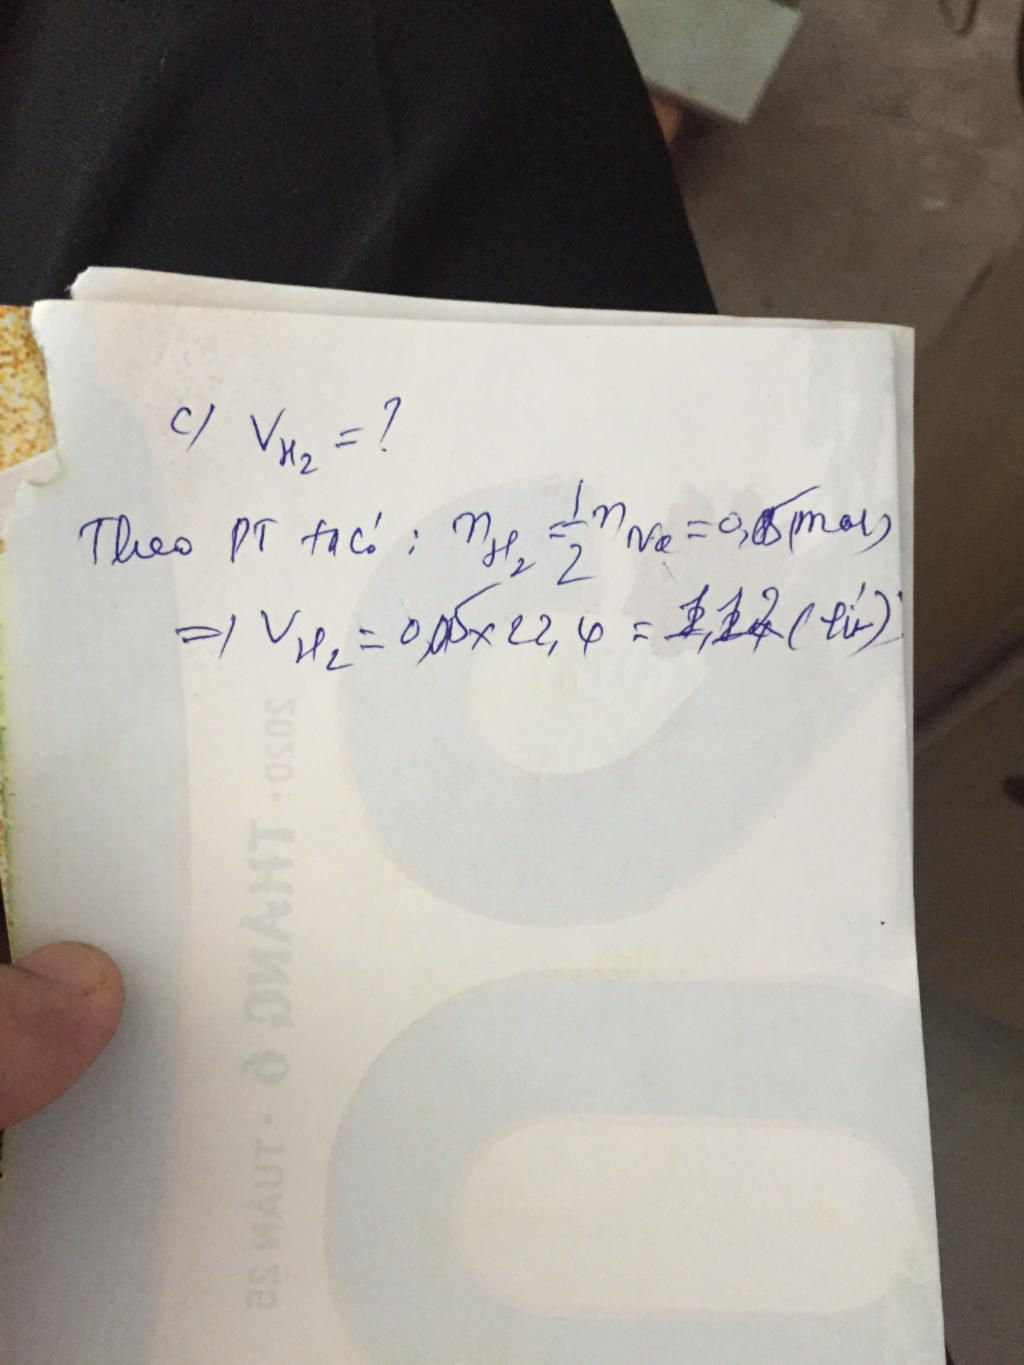 c/ V_H₂ = ?
Theo PT ta có: n_H₂ = 1/2 n_Na = 0,05 (mol)
=) V_H₂ = 0,05 x 22,4 = 1,12 (lít)
2020 · THÁNG 6 · TUẦN 25